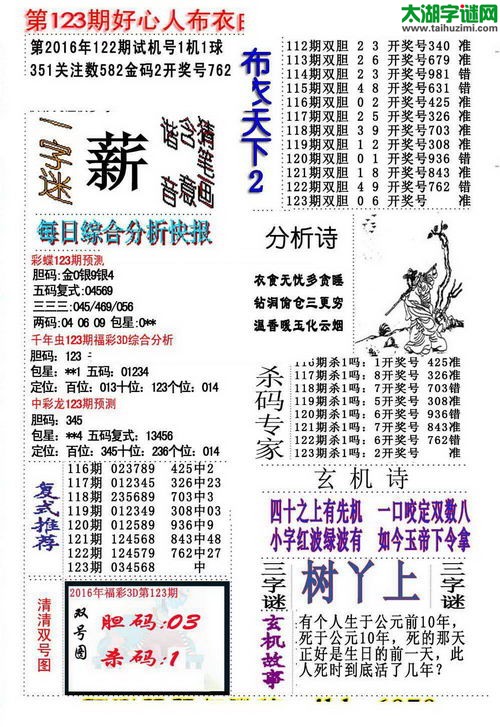 第123期好心人布衣
太湖字谜网
www.taihuzimi.com
第2016年122期试机号1机1球
351关注数582金码2开奖号762
一字迷
薪
猜含猪笔画意音
每日综合分析快报
彩蝶123期预测
胆码:金0银9银4
五码复式:04569
三三三:045/469/056
两码:04 06 09 包星:0**
千年虫123期福彩3D综合分析
胆码:123
包星:**1 五码:01234
定位:百位:013十位:123个位:014
中彩龙123期预测
胆码:345
包星:**4 五码复式:13456
定位:百位:345十位:236个位:014
复式推荐
116期 023789 425中2
117期 012345 326中23
118期 235689 703中3
119期 049319 308中03
120期 012569 936中9
121期 124568 843中48
122期 124579 762中27
123期 034568 中
清清双号图
2016年福彩3D第123期
双号图
胆码:03
杀码:1
布衣天下2
112期双胆 2 3 开奖号340 准
113期双胆 2 6 开奖号679 准
114期双胆 2 3 开奖号981 错
115期双胆 4 8 开奖号631 错
116期双胆 0 2 开奖号425 准
117期双胆 2 6 开奖号326 准
118期双胆 3 9 开奖号703 准
119期双胆 1 2 开奖号308 错
120期双胆 0 1 开奖号936 错
121期双胆 1 8 开奖号843 准
122期双胆 4 9 开奖号762 错
123期双胆 0 6 开奖号 准
分析诗
衣食无忧多贪睡
钻洞偷仓三更穷
温香暖玉化云烟
杀码专家
116期杀1吗:1开奖号 425准
117期杀1吗:8开奖号 326准
118期杀1吗:3开奖号 703错
119期杀1吗:5开奖号 308准
120期杀1吗:9开奖号 936错
121期杀1吗:7开奖号 843准
122期杀1吗:6开奖号 762错
123期杀1吗:2开奖号 准
玄机诗
四十之上有先机 一口咬定双数八
小字红波绿波有 如今玉帝下令拿
三字谜
树丫上
三字谜
玄机故事
有个人生于公元前10年,
死于公元10年,死的那天
正好是生日的前一天,此
人死时到底活了几年?